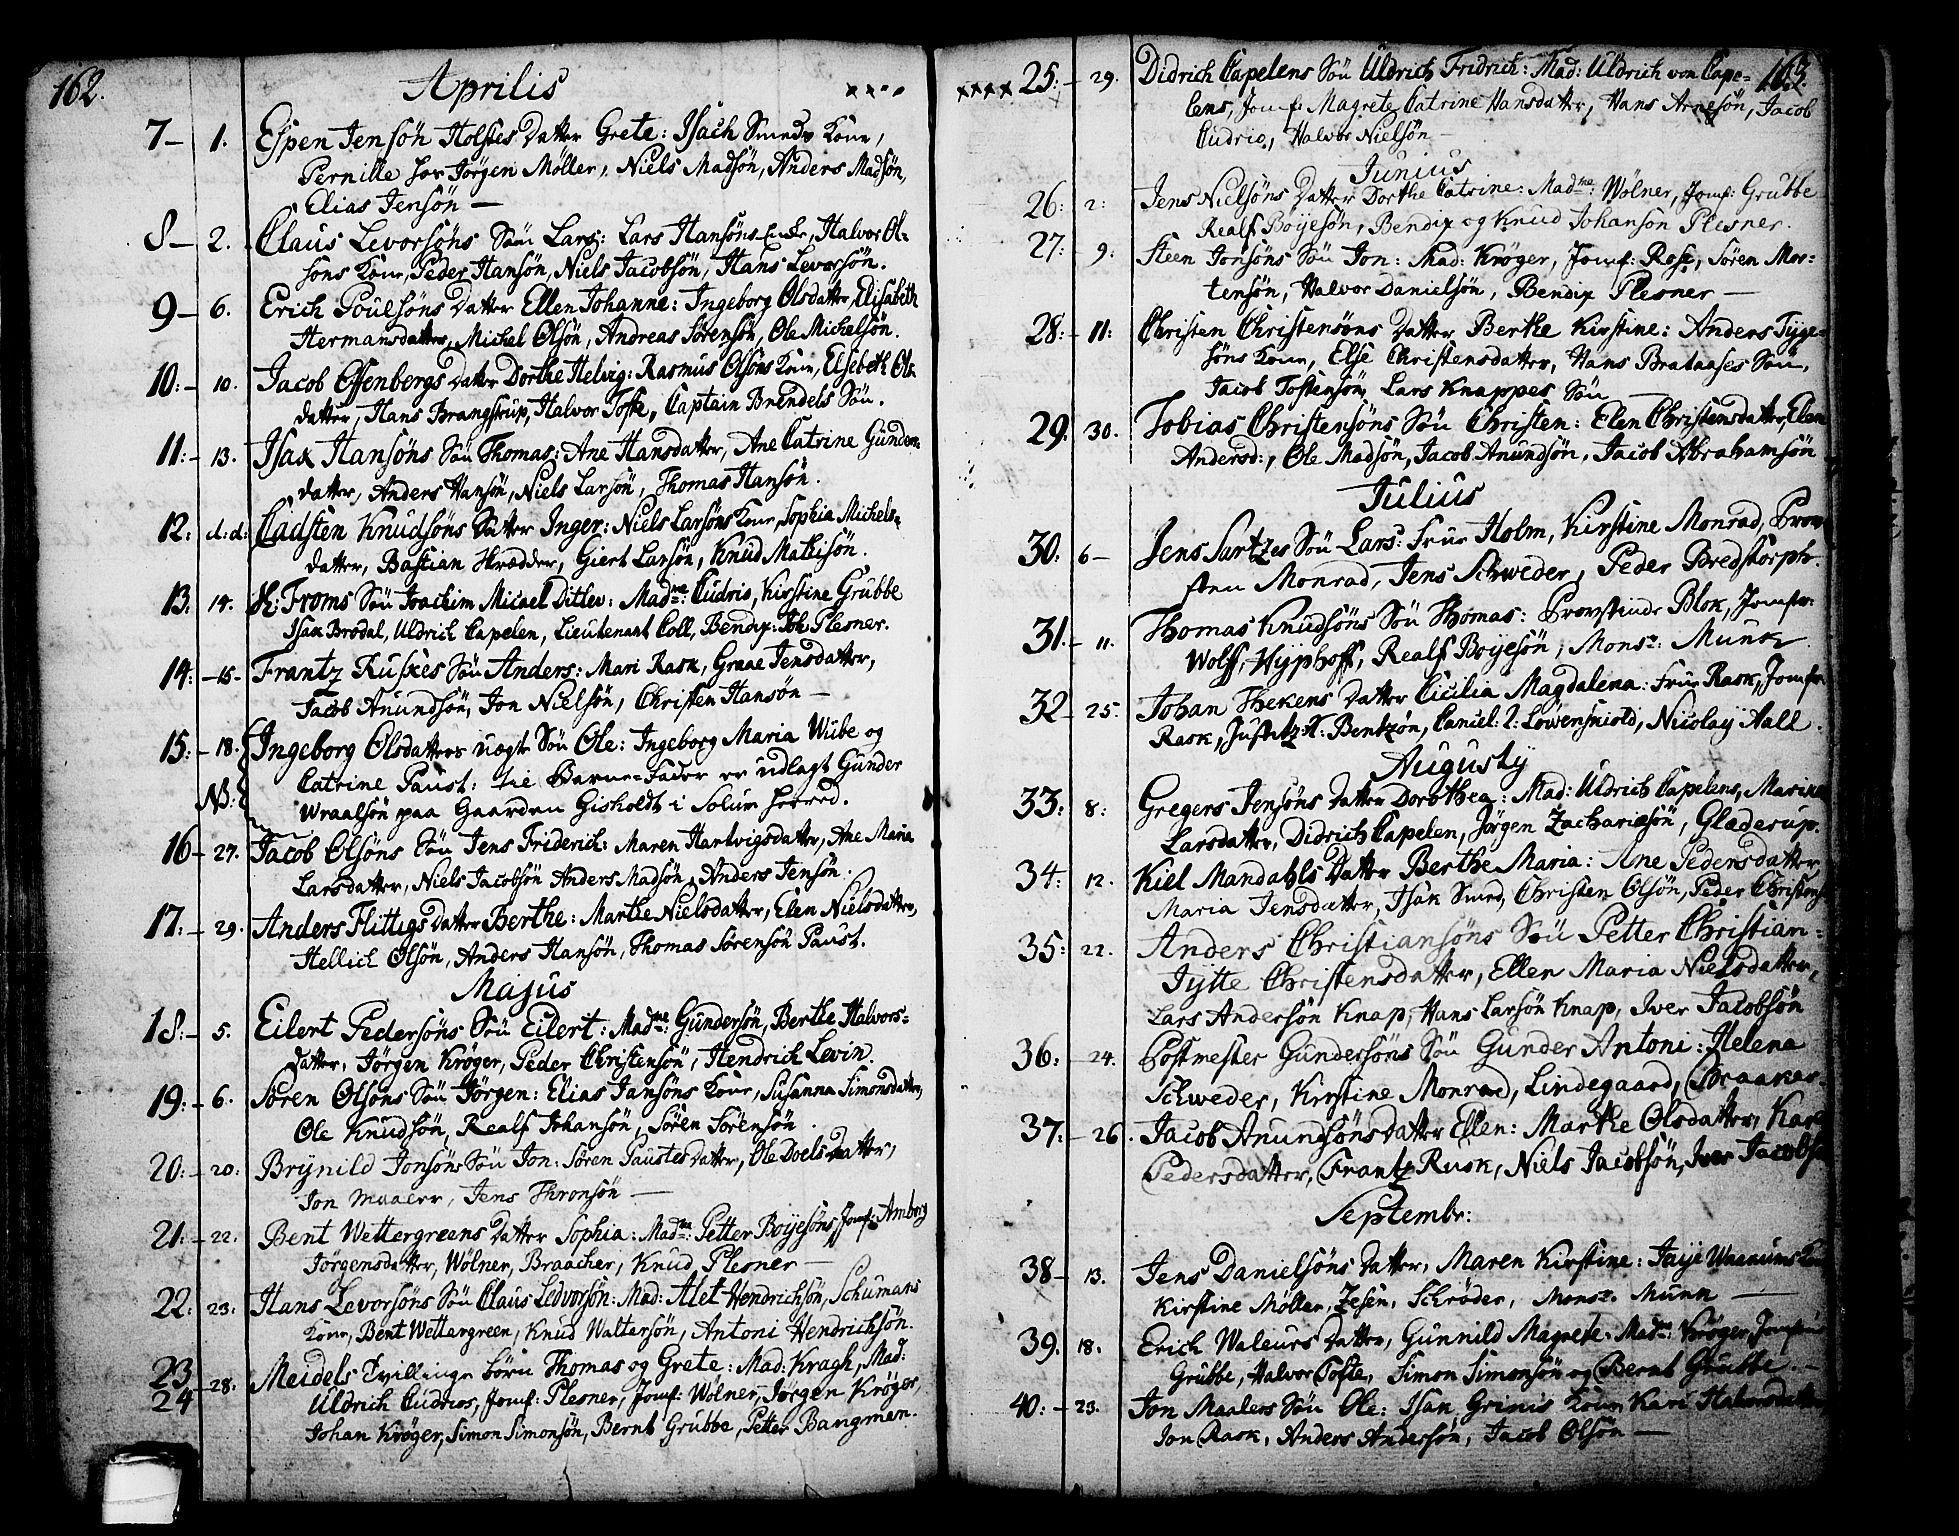 162.
Aprilis
7 – 1. Espen Jensön Holstes Datter Grete: Isach Smeds Kone,
Pernille hos Jörgen Möller, Niels Madsön, Anders Madsön,
Elias Jensön —
8 – 2. Claus Levorsöns Sön Lars: Lars Hansöns Enke, Halvor Ol=
sons Kone, Peder Hansön, Niels Jacobsön, Hans Levorsön.
9 – 6. Erich Poulsöns Datter Ellen Johanne: Ingeborg Olsdatter, Elisabeth
Hermansdatter, Michel Olsön, Andreas Sörensön, Ole Michelsön.
10: – 10. Jacob Offenbergs Datter Dorthe Helvig: Rasmus Olsöns Kone, Elsebeth Ols
datter, Hans Brangstrup, Halvor Tofte, Captain Brendels Sön.
11: – 13. Isax Hansöns Sön Thomas: Ane Hansdatter, Ane Catrine Gunder=
datter, Anders Hansön, Niels Larsön, Thomas Hansön.
12: d: d: Cadsten Knudsöns Datter Inger: Niels Larsöns Kone, Sophia Michels=
datter, Bastian Skrædder, Giert Larsön, Knud Mathisön.
13. – 14. H: Froms Sön Joachim Micael Ditlev: Madme: Cudrio, Kirstine Grubbe
Isax Brodal, Uldrich Capelen, Lieutenant Coll, Bendix: Joh Plesner.
14: – 15 – Frantz Ruskes Sön Anders: Mari Rask, Graae Jensdatter,
Jacob Anundsön, Jon Nielsön, Christen Hansön —
15: – 18: Ingeborg Olsdatters uægte Sön Ole: Ingeborg Maria Wibe og
Catrine Paust: til Barne-Fader er udlagt Gunder
NB: Wraalsön paa Gaarden Gisholdt i Solum Herred.
16 – 27. Jacob Olsöns Sön Jens Friderich: Maren Hartvigsdatter, Ane Maria
Larsdatter, Niels Jacobsön Anders Madsön, Anders Jensön.
17: – 29. Anders Flittigs Datter Berthe: Marthe Nielsdatter, Elen Nielsdatter,
Hellich Olsön, Anders Hansön, Thomas Sörensön Paust.
Majus
18: – 5. Eilert Pedersöns Sön Eilert: Madme: Gundersön, Berthe Halvors=
datter, Jörgen Kröger, Peder Christensön, Hendrich Levin.
19: – 6. Sören Olsöns Sön Jörgen: Elias Jansöns Kone, Susanna Simonsdatter,
Ole Knudsön, Realf Johansön, Sören Sörensön.
20: – 20: Brÿnild Jonsöns Sön Jon: Sören Paustes Datter, Ole Doels Datter,
Jon Maaler, Jens Thronsön —
21: – 22. Bent Wettergreens Datter Sophia: Madme: Petter Boÿesöns, Jomf: Amborg
Jörgensdatter, Wölner, Braacher, Knud Plesner —
22: 23: Hans Levorsöns Sön Claus Ledvorsön: Mad: Alet Hendrichsön, Schumans
Kone, Bent Wettergreen, Knud Waltersön, Antoni Hendrichsön.
23
24 – 28: Meidels Tvillinge börn Thomas og Grete: Mad: Kragh, Mad:
Uldrich Cudrios, Jomf: Plesner, Jomf: Wölner, Jörgen Kröger,
Johan Kröger, Simon Simonsön, Bernt Grubbe, Petter Bangmen.
163.
25: – 29. Didrich Capelens Sön Uldrich Fridrich: Mad: Uldrich von Cape=
lens, Jomf: Magrete Catrine Hansdatter, Hans Arnesön, Jacob
Cudrio, Halvor Nielsön —
Junius
26: 2: Jens Nielsöns Datter Dorthe Catrine: Madme: Wölner, Jomf: Grubbe
Realf Boÿesön, Bendix og Knud Johansön Plesner.
27: – 9: Steen Jonsöns Sön Jon: Mad: Kröger, Jomf: Rose, Sören Mor=
tensön, Halvor Danielsön, Bendix Plesner —
28: – 11: Christen Christensöns Datter Berthe Kirstine: Anders Tÿge=
söns Kone, Else Christensdatter, Hans Brataases Sön,
Jacob Toftensön, Lars Knappes Sön —
29. 30. Tobias Christensöns Sön Christen: Elen Christensdatter, Elen
Andersd:, Ole Madsön, Jacob Anundsön, Jacob Abrahamsön
Julius
30. 6 – Jens Sartzes Sön Lars: Frue Holm, Kirstine Monrad, Prov=
sten Monrad, Jens Schweder, Peder Bredstorph.
31. – 11. Thomas Knudsöns Sön Thomas: Provstinde Blok, Jomfr:
Wolff, Hÿphoff, Realf Boÿesön, Monsr: Munk
32 – 25. Johan Thekens Datter Cicilia Magdalena: Frue Rask, Jomfr
Rask, Justitz R: Bentzön, Cancel: I: Löwenskiold, Nicolaÿ Aall.
Augustÿ
33: 8: Gregers Jensöns Datter Dorothea: Mad: Uldrich Capelens, Maria
Larsdatter, Didrich Capelen, Jörgen Zachariæsön, Glæderup.
34: 12. Kiel Mandahls Datter Berthe Maria: Ane Pedersdatter
Maria Jensdatter, Isak Smed, Christen Olsön, Peder Christens
35: 22. Anders Christiansöns Sön Petter Christian:
Jÿtte Christensdatter, Ellen Maria Nielsdatter,
Lars Andersön Knap, Hans Larsön Knap, Iver Jacobsön
36: – 24. Postmester Gundersöns Sön Gunder Antoni: Helena
Schweder, Kirstine Monrad, Lindegaard, Braaker.
37: – 26. Jacob Anundsöns Datter Ellen: Marthe Olsdatter, Kare
Pedersdatter, Frantz Rusk, Niels Jacobsön, Iver Jacobsö
Septembr:
38 – 13. Jens Danielsöns Datter, Maren Kirstine: Taÿe Waanums Kone
Kirstine Möller, Zesen, Schröder, Monsr. Munk —
39. 18. Erich Waleurs Datter, Gunnild Magrete: Madme: Kröger, Jomfrue
Grubbe, Halvor Tofte, Simon Simonsön og Bernt Grubbe. —
40: – 23. Jon Maalers Sön Ole: Isak Grinis Kone, Kari Halvorsdatter,
Jon Rask, Anders Andersön, Jacob Olsön —